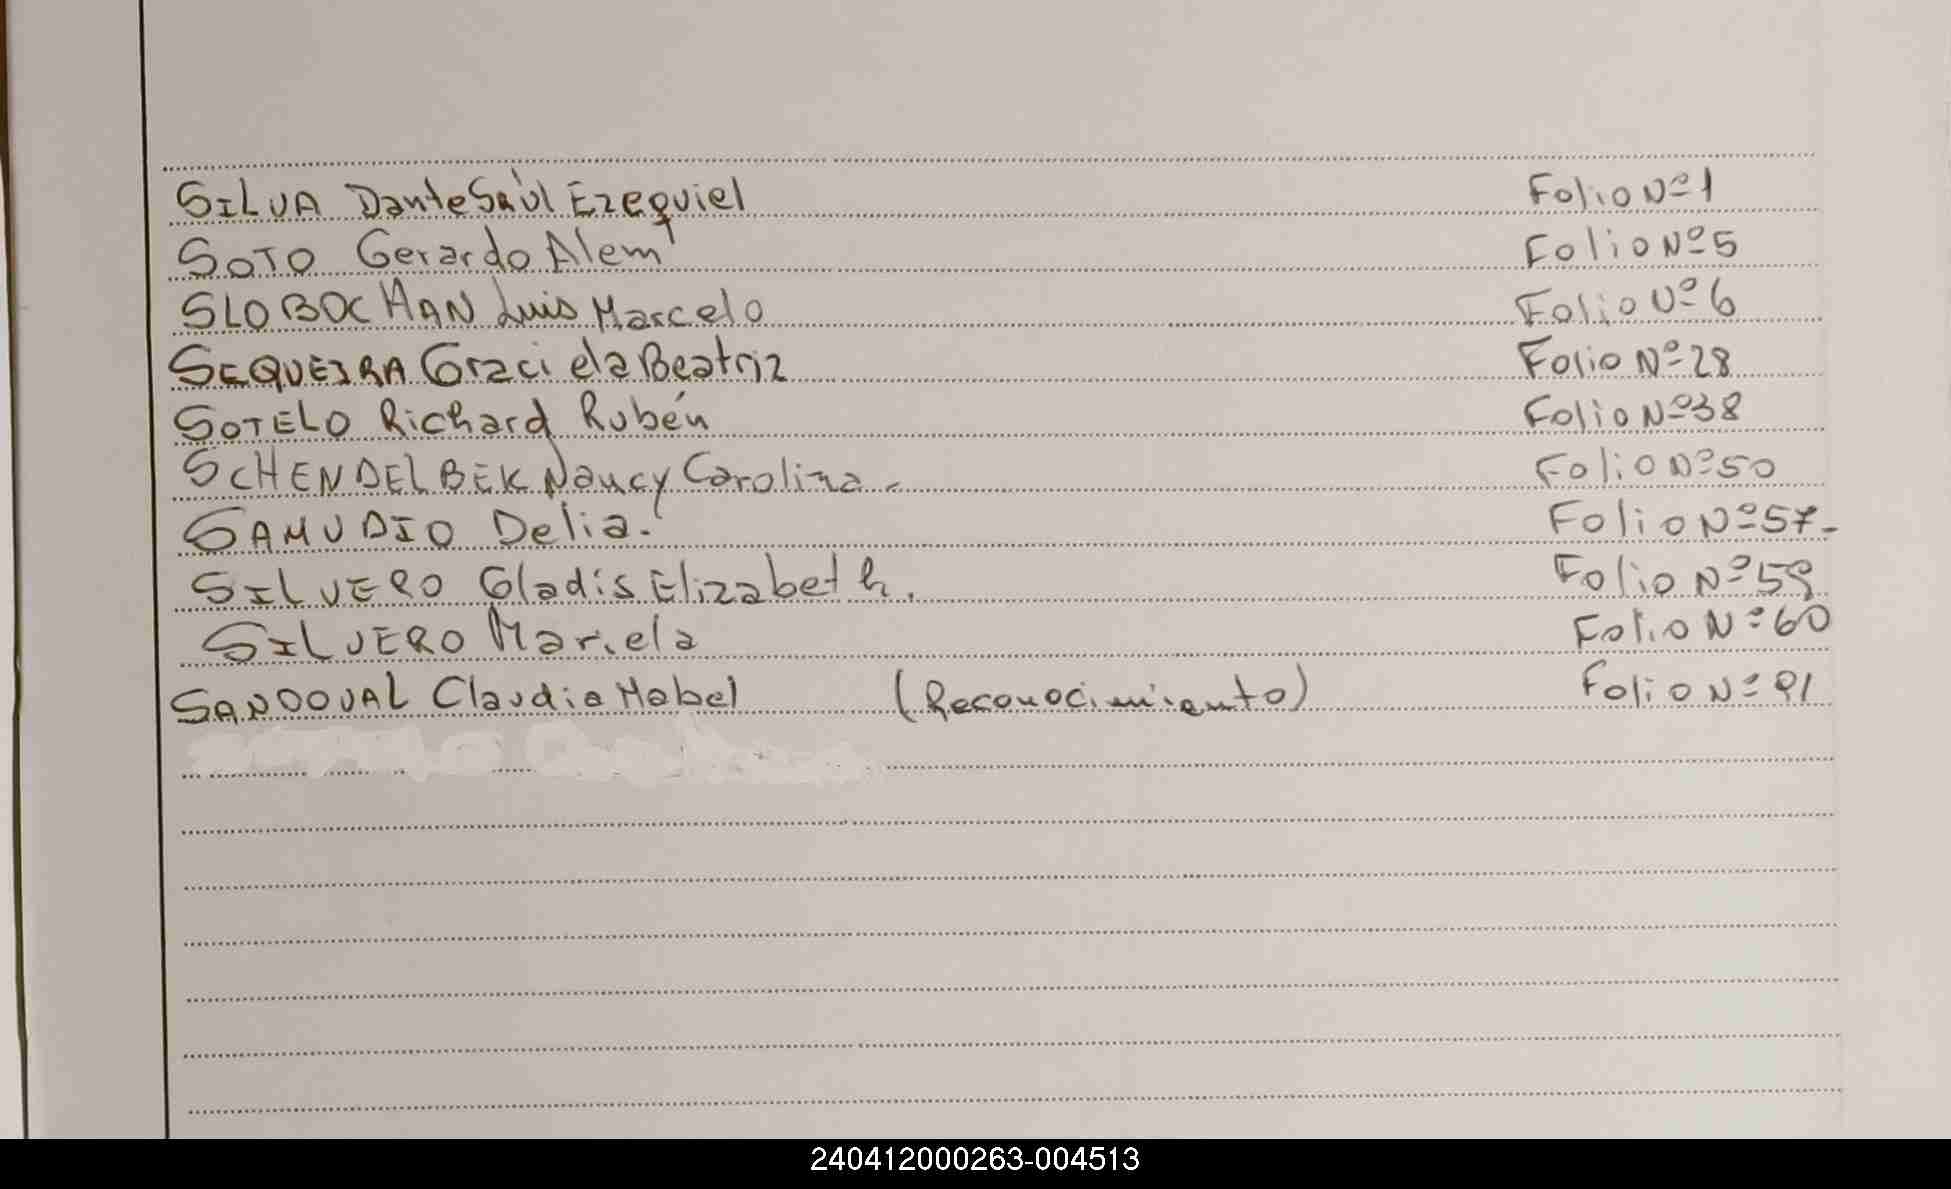 SILVA Dante Saúl Ezequiel Folio Nº 1
SOTO Gerardo Alem Folio Nº 5
SLOBOCHAN Luis Marcelo Folio Nº 6
SEQUEIRA Graciela Beatriz Folio Nº 28
SOTELO Richard Rubén Folio Nº 38
SCHENDELBEK Nancy Carolina. Folio Nº 50
SAMUDIO Delia. Folio Nº 57-
SILVERO Gladis Elizabeth. Folio Nº 59
SILVERO Mariela Folio Nº 60
SANDOVAL Claudia Mabel (Reconocimiento) Folio Nº 91
240412000263-004513